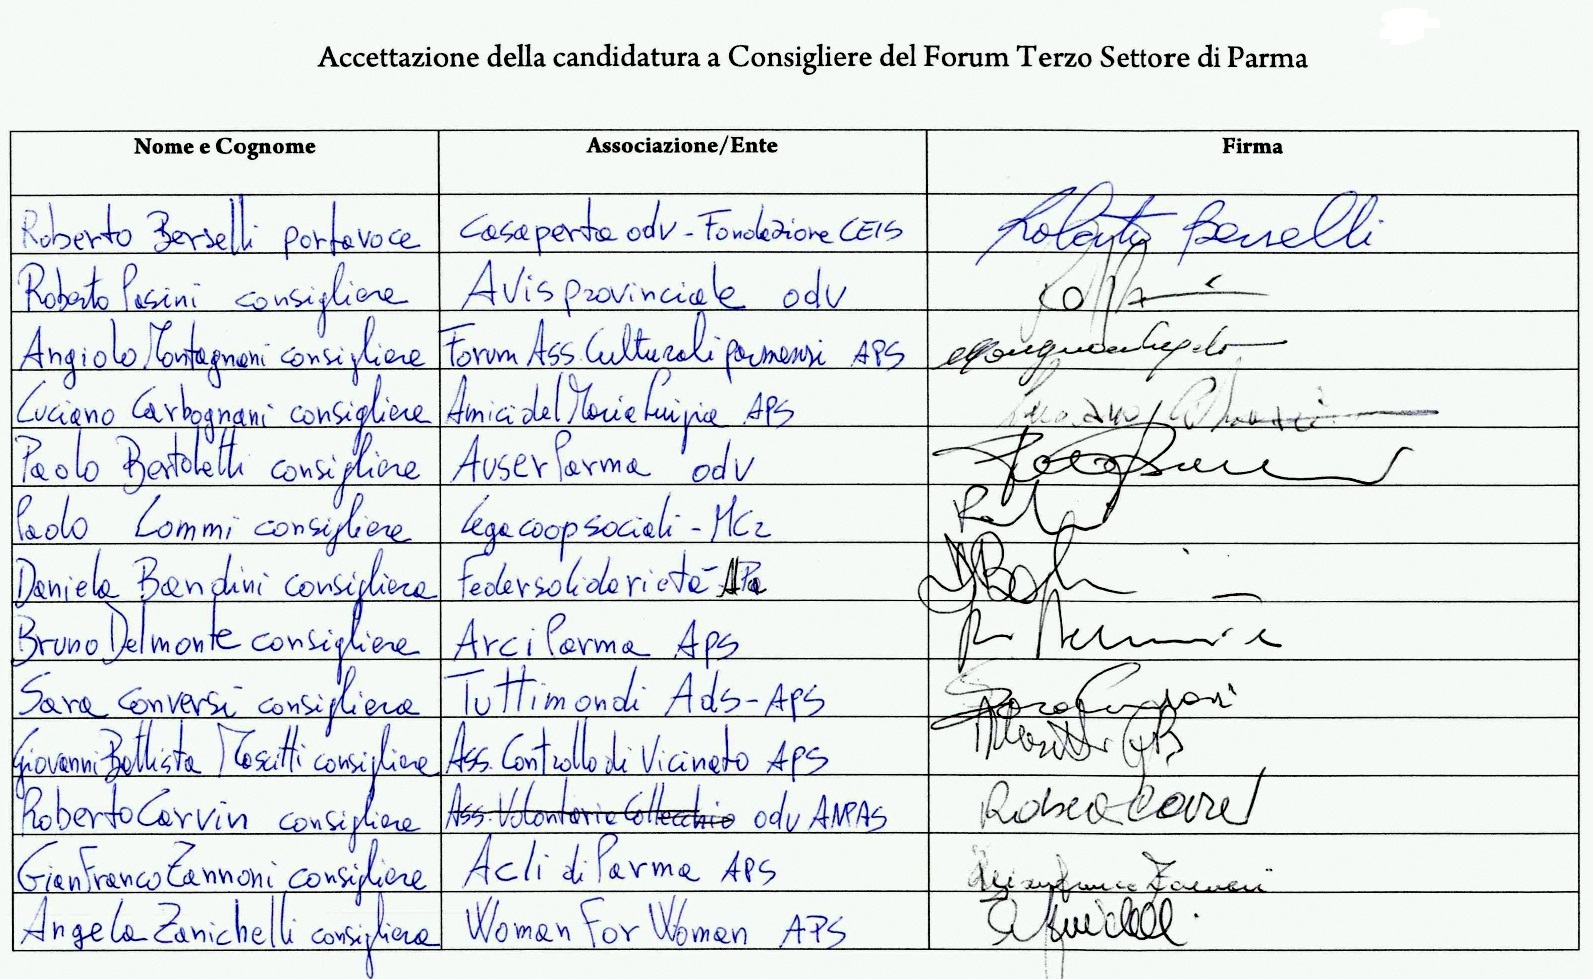 Accettazione della candidatura a Consigliere del Forum Terzo Settore di Parma
Nome e Cognome Associazione/Ente Firma
Roberto Berselli portavoce Casaperta odv - Fondazione CEIS Roberto Berselli
Roberto Pasini consigliere Avis provinciale odv
Angiolo Montagnani consigliere Forum Ass. Culturali parmensi APS
Luciano Carbognani consigliere Amici del Maria Luigia APS
Paolo Bertoletti consigliere Auser Parma odv
Paolo Lommi consigliere Legacoopsociali - MC2
Daniela Bandini consigliera Federsolidarietà
Bruno Delmonte consigliere Arci Parma APS
Sara conversi consigliera Tuttimondi Ads-APS
Giovanni Battista Moscitti consigliere Ass. Controllo di Vicinato APS
Roberto Carvin consigliere Ass. Volontaria Collecchio odv ANPAS
Gianfranco Zannoni consigliere Acli di Parma APS Gianfranco Zannoni
Angela Zanichelli consigliera Woman For Woman APS